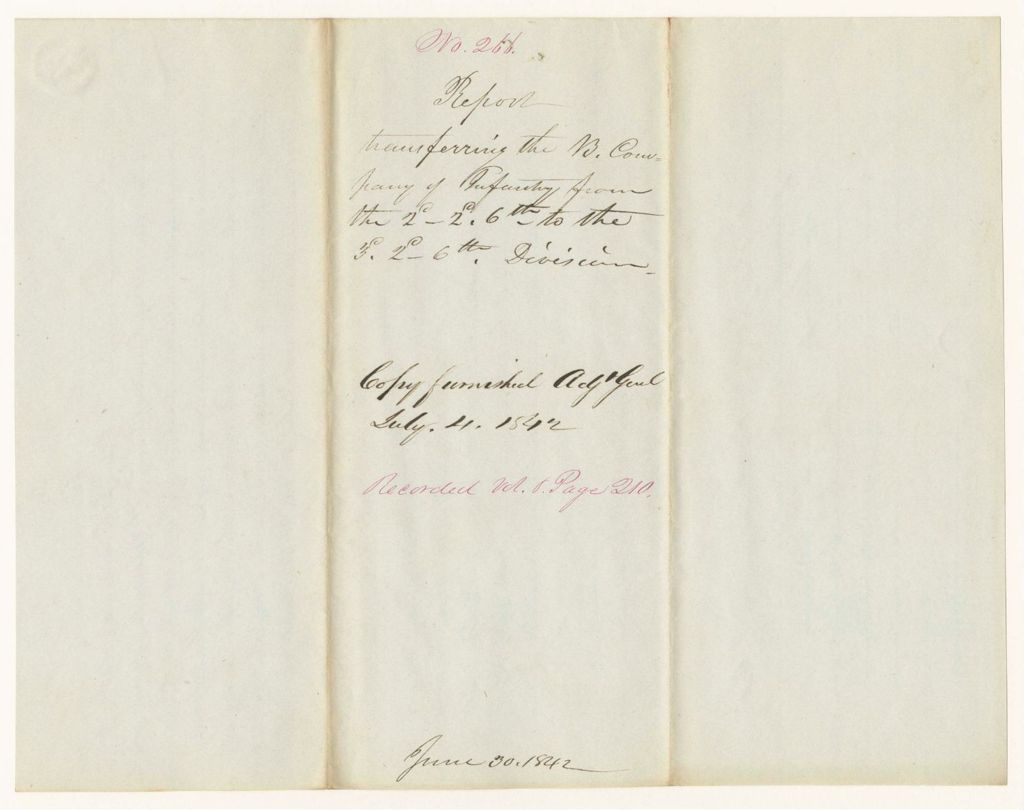 No. 266.
Report
transferring the B. Com-
pany of Infantry from
the 2d- 2d. 6th to the
3d. 2d- 6th. Division.
Copy furnished Adjt Genl
July. 4. 1842
Recorded Vol. 1. Page 210.
June 30. 1842